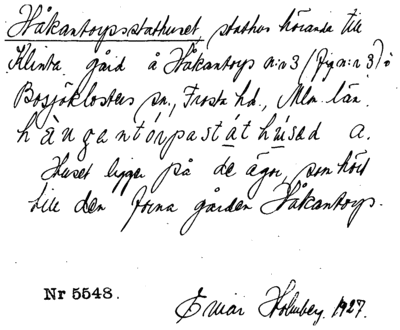 Håkantorpsstathuset, stathus hörande till
Klinta gård å Håkantorp n:r 3 (fig n:r 3) i
Bosjöklosters sn., Frosta hd., Mlm. län.
a.
Huset ligger på de ägor, som hört
till den forna gården Håkantorp.
Nr 5548.
Einar Holmberg. 1927.